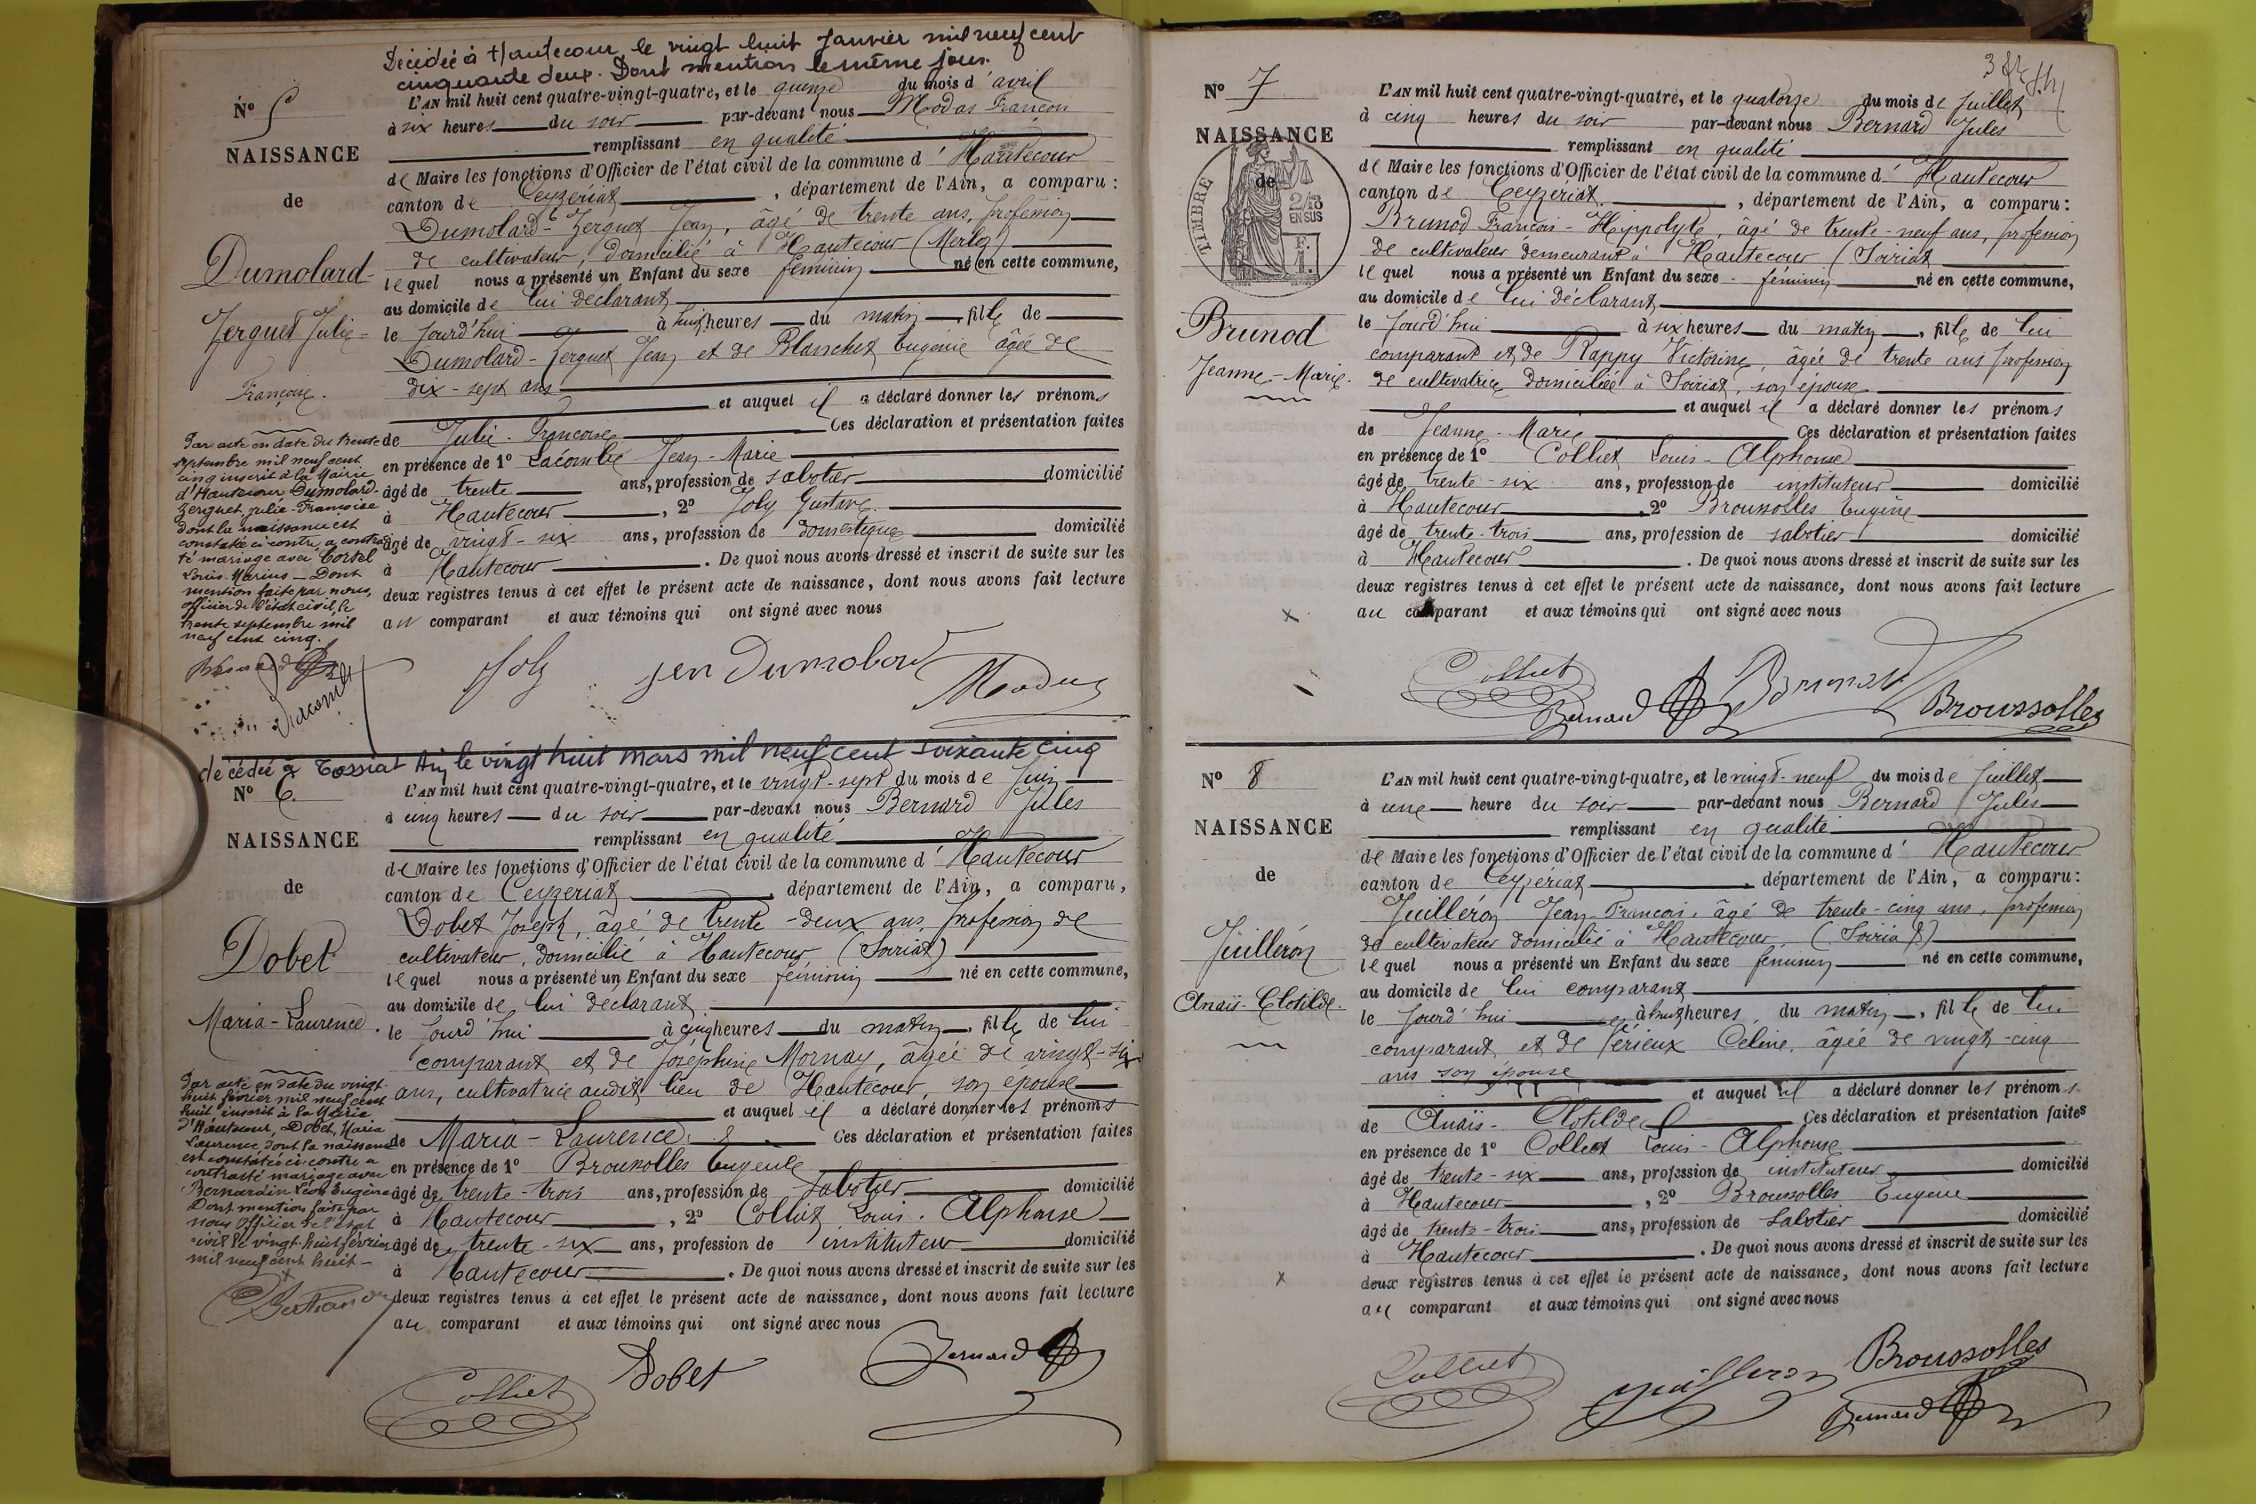 Décédée à Hautecour le vingt huit Janvier mil neuf cent
cinquante deux. Dont mention le même jour.
N° 5
NAISSANCE
de
Dumolard-
Zerguet Julie-
Françoise.
L'AN mil huit cent quatre-vingt-quatre, et le quinze du mois d'avril
à six heures du soir par-devant nous Modas François
remplissant en qualité
de Maire les fonctions d'Officier de l'état civil de la commune d'Hautecour
canton de Ceyzériat, département de l'Ain, a comparu :
Dumolard-Zerguet Jean, âgé de trente ans, profession
de cultivateur, domicilié à Hautecour (Merloz)
lequel nous a présenté un Enfant du sexe féminin né en cette commune,
au domicile de lui déclarant
le jourd'hui à huit heures du matin, fille de
Dumolard-Zerguet Jean et de Blanchet Eugénie âgée de
dix-sept ans
et auquel il a déclaré donner les prénoms
de Julie-Françoise Ces déclaration et présentation faites
en présence de 1° Lacombe Jean-Marie
âgé de trente ans, profession de sabotier domicilié
à Hautecour, 2° Joly Gustave
âgé de vingt-six ans, profession de domestique domicilié
à Hautecour. De quoi nous avons dressé et inscrit de suite sur les
deux registres tenus à cet effet le présent acte de naissance, dont nous avons fait lecture
au comparant et aux témoins qui ont signé avec nous
Par acte en date du trente
septembre mil neuf cent
cinq inscrit à la Mairie
d'Hautecour Dumolard-
Zerguet Julie-Françoise
dont la naissance est
constatée ci-contre, a contrac
té mariage avec Cortel
Louis-Marius - Dont
mention faite par nous,
officier de l'état civil, le
trente septembre mil
neuf cent cinq.
Bernard
Joly Jen Dumolard Modas
décédée à Tossiat Ain le vingt huit mars mil neuf cent soixante cinq
N° 6.
NAISSANCE
de
Dobet
Maria-Laurence.
L'AN mil huit cent quatre-vingt-quatre, et le vingt-sept du mois de Juin
à cinq heures du soir par-devant nous Bernard Jules
remplissant en qualité
de Maire les fonctions d'Officier de l'état civil de la commune d'Hautecour
canton de Ceyzériat, département de l'Ain, a comparu,
Dobet Joseph, âgé de trente-deux ans, profession de
cultivateur, domicilié à Hautecour (Soiriat)
lequel nous a présenté un Enfant du sexe féminin né en cette commune,
au domicile de lui déclarant
le jourd'hui à cinq heures du matin, fille de lui
comparant et de Joséphine Mornay, âgée de vingt-six
ans, cultivatrice audit lieu de Hautecour, son épouse
et auquel il a déclaré donner les prénoms
de Maria-Laurence. Ces déclaration et présentation faites
en présence de 1° Broussolles Eugène
âgé de trente-trois ans, profession de Sabotier domicilié
à Hautecour, 2° Colliet Louis-Alphonse
âgé de trente-six ans, profession de instituteur domicilié
à Hautecour. De quoi nous avons dressé et inscrit de suite sur les
deux registres tenus à cet effet le présent acte de naissance, dont nous avons fait lecture
au comparant et aux témoins qui ont signé avec nous
Par acte en date du vingt-
huit février mil neuf cent
huit, inscrit à la Mairie
d'Hautecour, Dobet, Maria
Laurence dont la naissance
est constatée ci-contre a
contracté mariage avec
Bernardin Léon Eugène
Dont mention faite par
nous Officier de l'état
civil le vingt-huit février
mil neuf cent huit-
Colliet Dobet Bernard
N° 7
NAISSANCE
de
TIMBRE
2/10
EN SUS
Brunod
Jeanne-Marie.
L'AN mil huit cent quatre-vingt-quatre, et le quatorze du mois de Juillet
à cinq heures du soir par-devant nous Bernard Jules
remplissant en qualité
de Maire les fonctions d'Officier de l'état civil de la commune d'Hautecour
canton de Ceyzériat, département de l'Ain, a comparu :
Brunod François-Hyppolyte, âgé de trente-neuf ans, profession
de cultivateur demeurant à Hautecour (Soiriat
lequel nous a présenté un Enfant du sexe féminin né en cette commune,
au domicile de lui déclarant
le jourd'hui à six heures du matin, fille de lui
comparant et de Rappy Victorine, âgée de trente ans profession
de cultivatrice domiciliée à Soiriat, son épouse
et auquel il a déclaré donner les prénoms
de Jeanne-Marie Ces déclaration et présentation faites
en présence de 1° Colliet Louis-Alphonse
âgé de trente-six ans, profession de instituteur domicilié
à Hautecour, 2° Broussolles Eugène
âgé de trente-trois ans, profession de sabotier domicilié
à Hautecour. De quoi nous avons dressé et inscrit de suite sur les
deux registres tenus à cet effet le présent acte de naissance, dont nous avons fait lecture
au comparant et aux témoins qui ont signé avec nous
Colliet Bernard Brunod Broussolles
N° 8
NAISSANCE
de
Juilléron
Anaïs-Clotilde.
L'AN mil huit cent quatre-vingt-quatre, et le vingt-neuf du mois de Juillet
à une heure du soir par-devant nous Bernard Jules
remplissant en qualité
de Maire les fonctions d'Officier de l'état civil de la commune d'Hautecour
canton de Ceyzériat, département de l'Ain, a comparu :
Juilléron Jean-François, âgé de trente-cinq ans, profession
de cultivateur domicilié à Hautecour, (Soiriat)
lequel nous a présenté un Enfant du sexe féminin né en cette commune,
au domicile de lui comparant
le jourd'hui à huit heures du matin, fille de lui
comparant et de Périeux Céline, âgée de vingt-cinq
ans son épouse
et auquel il a déclaré donner les prénoms
de Anaïs-Clotilde Ces déclaration et présentation faites
en présence de 1° Colliet Louis-Alphonse
âgé de trente-six ans, profession de instituteur domicilié
à Hautecour, 2° Broussolles Eugène
âgé de trente-trois ans, profession de sabotier domicilié
à Hautecour. De quoi nous avons dressé et inscrit de suite sur les
deux registres tenus à cet effet le présent acte de naissance, dont nous avons fait lecture
au comparant et aux témoins qui ont signé avec nous
Colliet Juilleron Broussolles
Bernard